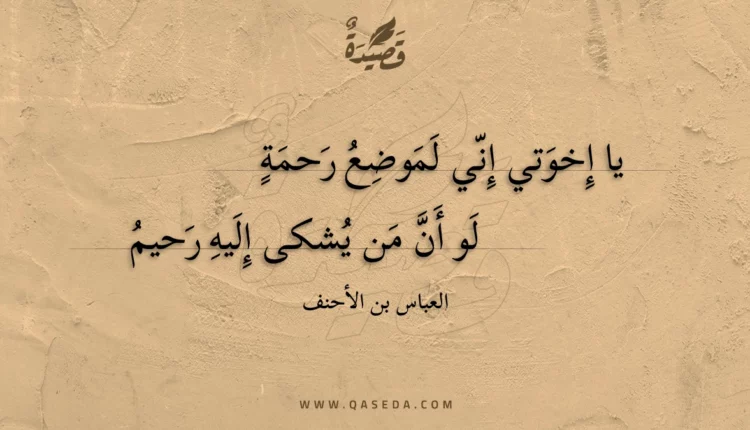 قَصِيدَةٌ
يا إِخوَتي إِنّي لَمَوضِعُ رَحمَةٍ
لَو أَنَّ مَن يُشكى إِلَيهِ رَحيمُ
العباس بن الأحنف
WWW.QASEDA.COM